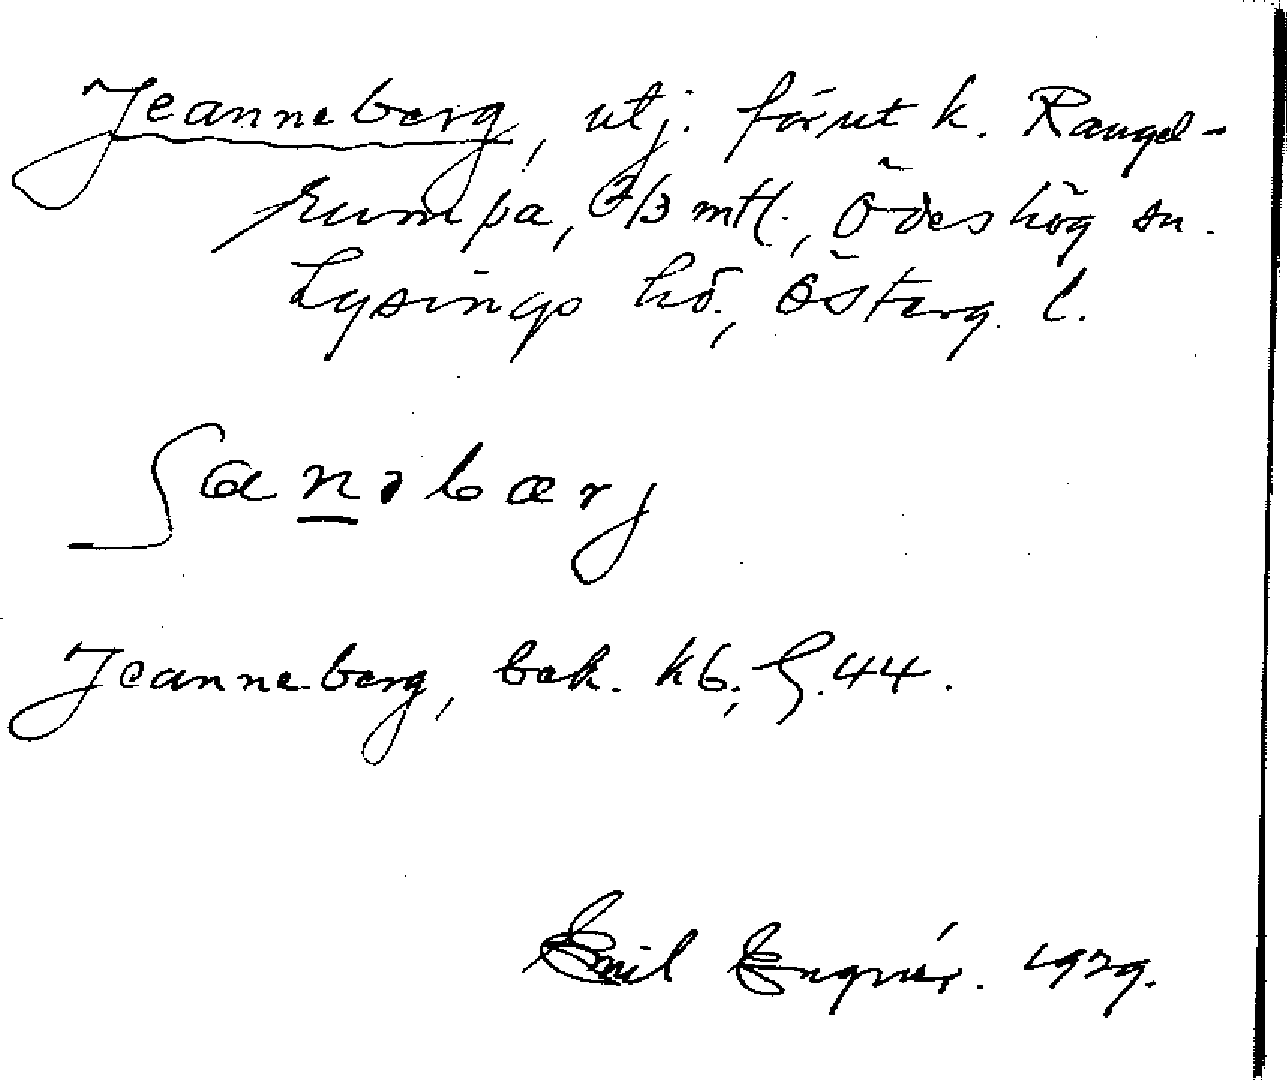 Jeanneberg, utj. förut k. Rangel-
rumpa, 2/3 mtl., Ödeshög sn.
Lysings hd., Österg. l.
Jeanneberg, bek. kb, G. 44.
Emil Engnér. 1929.